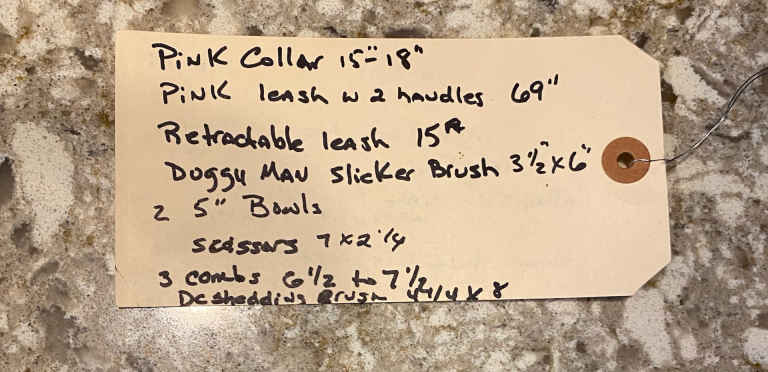 Pink Collar 15"-18"
Pink leash w 2 handles 69"
Retractable leash 15ft
Doggy Man Slicker Brush 3 1/2" x 6"
2 5" Bowls
scissors 7 x 2 1/4
3 combs 6 1/2 to 7 1/2
Desheddding Brush 4 1/4 x 8